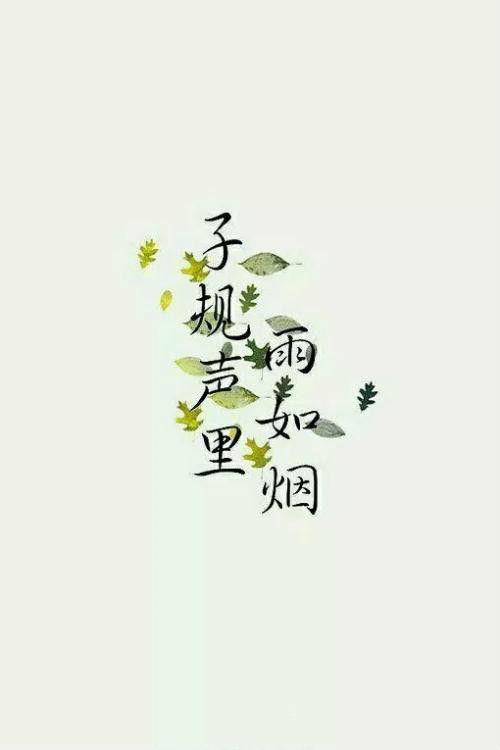 子规声里
雨如烟